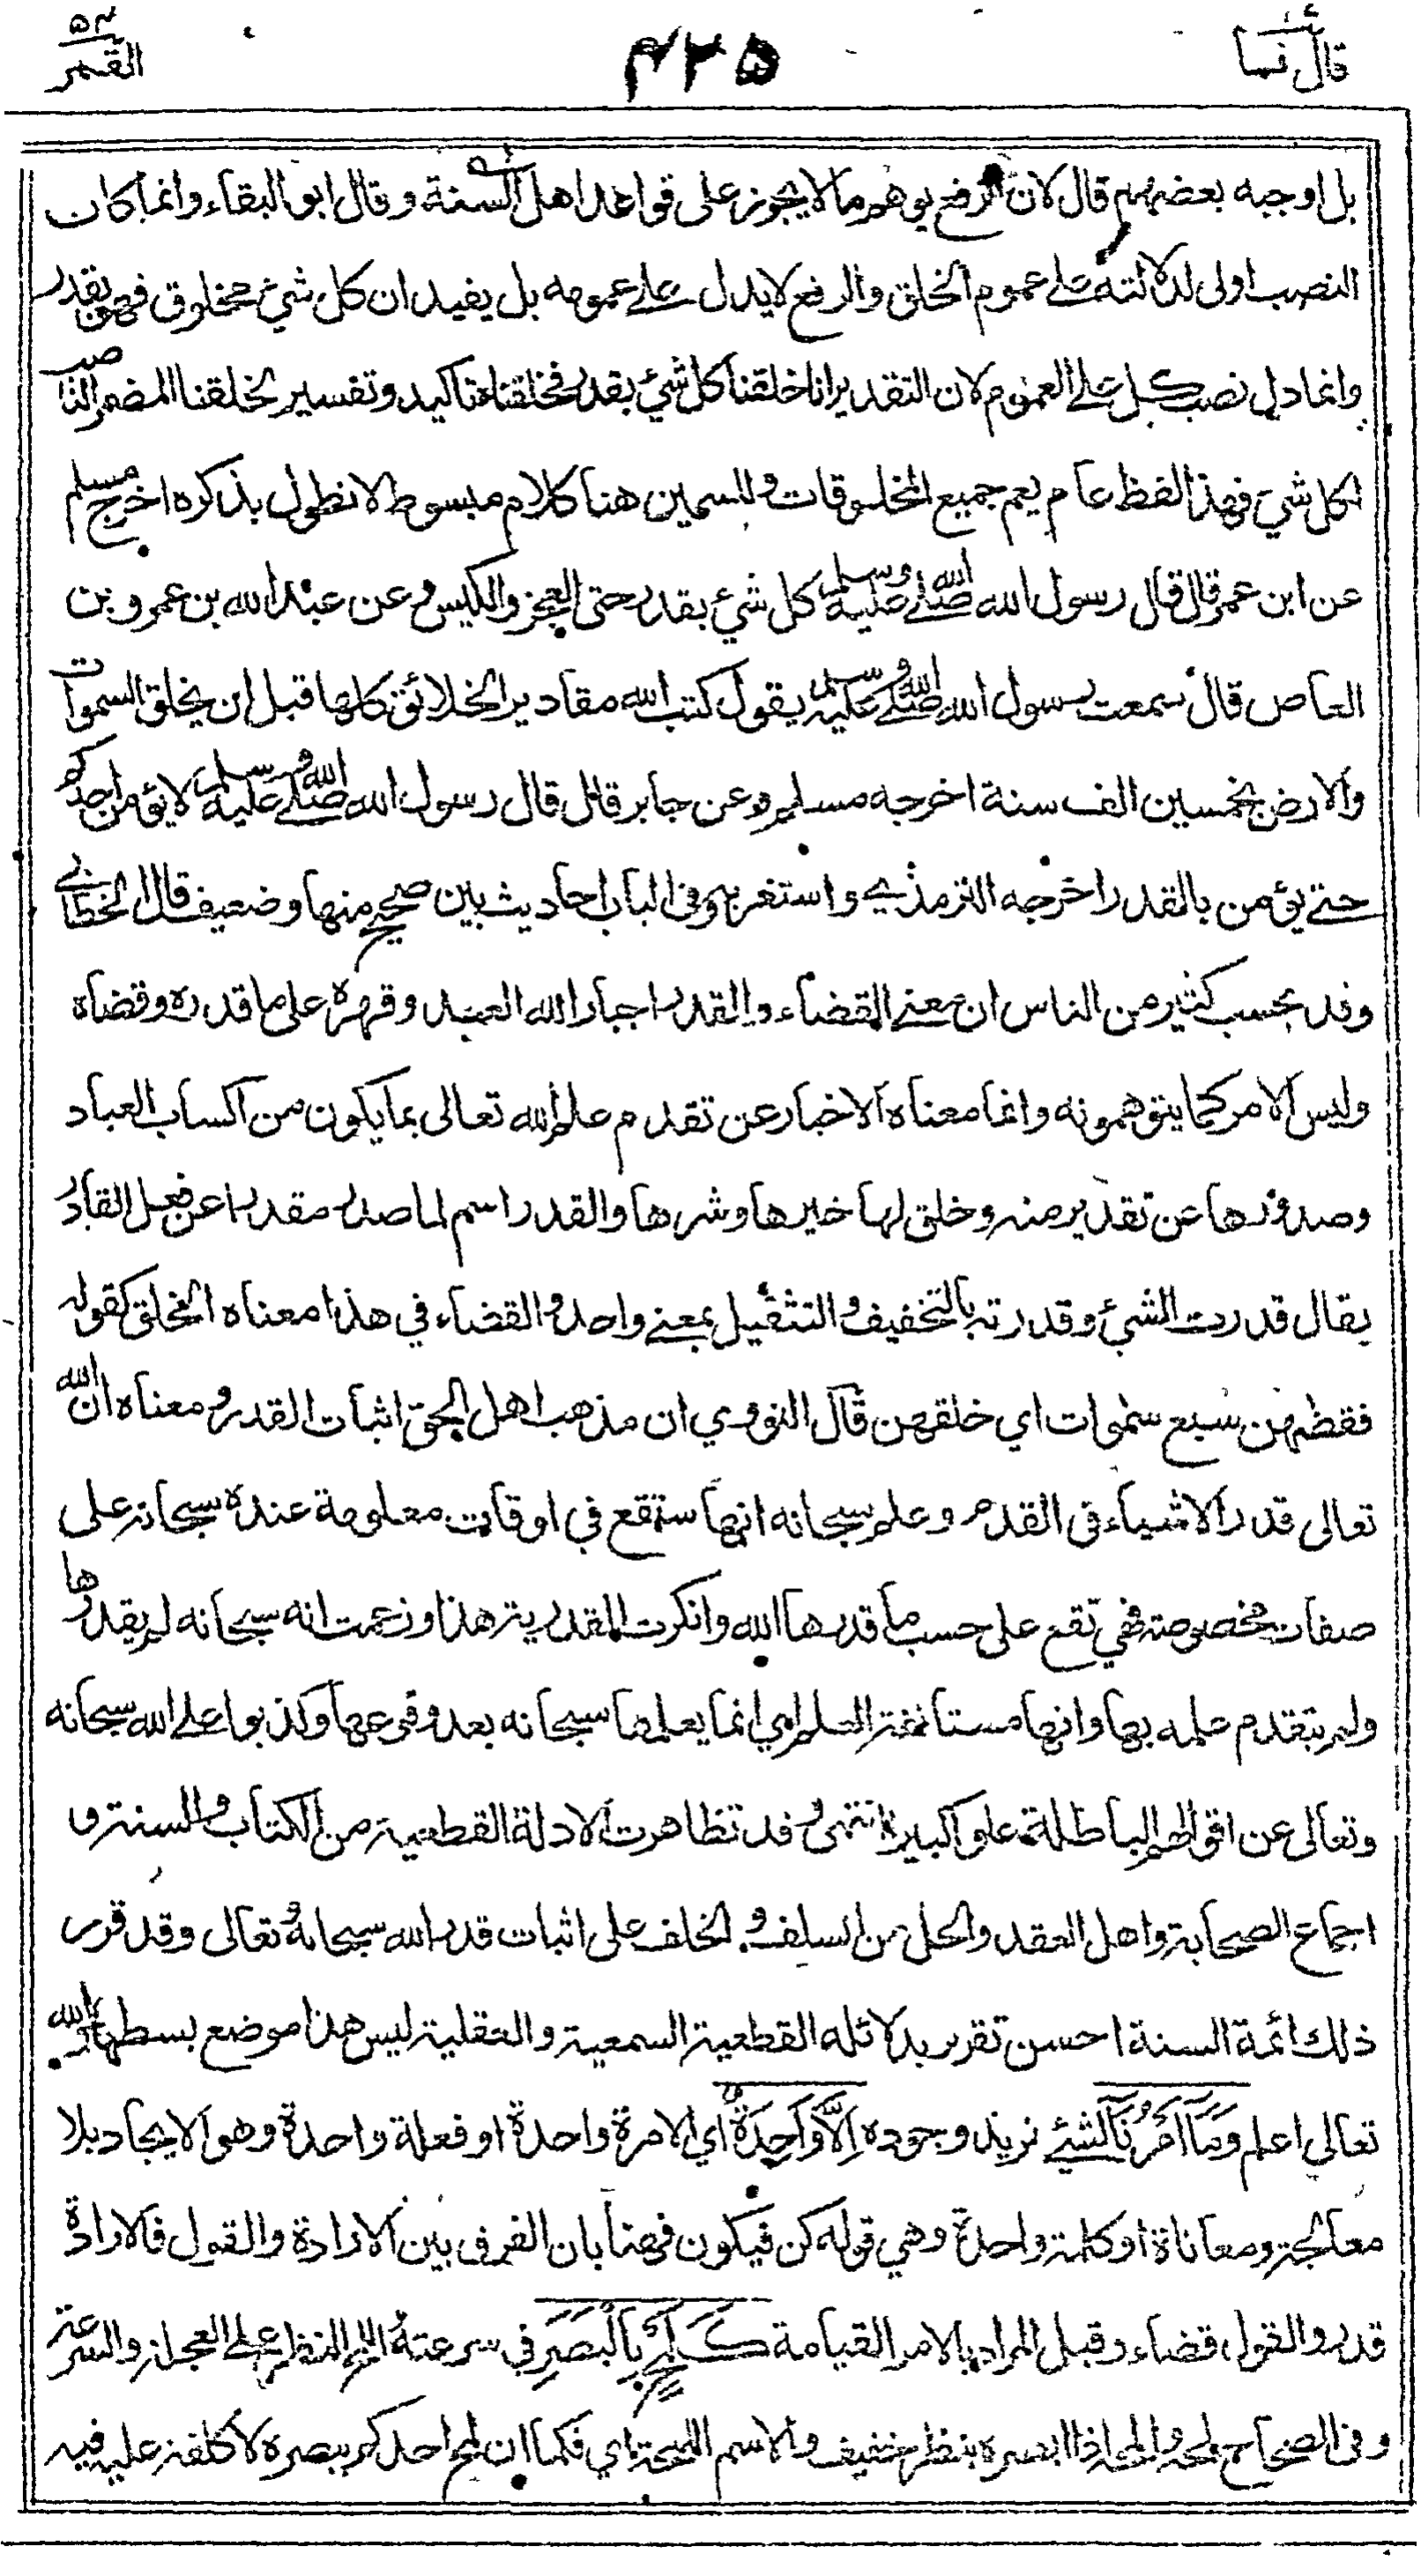 قال فما
٤٢٥
٥٤
القمر
بل اوجبه بعضهم قال لان الرفع يوهم ما لا يجوز على قواعد اهل السنة وقال ابو البقاء وانما كان
النصب اولى لدلالته على عموم الخلق والرفع لا يدل على عمومه بل يفيد ان كل شيء مخلوق فهو بقدر
وانما دل نصب كل على العموم لان التقدير انا خلقنا كل شيء بقدر فخلقناه تاكيد وتفسير لخلقنا المضمر الناصب
لكل شيء فهذا لفظ عام يعم جميع المخلوقات وللسمين هنا كلام مبسوط لا نطول بذكره اخرج مسلم
عن ابن عمر قال قال رسول الله صلى الله عليه وسلم كل شيء بقدر حتى العجز والكيس وعن عبد الله بن عمرو بن
العاص قال سمعت رسول الله صلى الله عليه وسلم يقول كتب الله مقادير الخلائق كلها قبل ان يخلق السموات
والارض بخمسين الف سنة اخرجه مسلم وعن جابر قال قال رسول الله صلى الله عليه وسلم لا يؤمن احدكم
حتى يؤمن بالقدر اخرجه الترمذي واستغربه وفي الباب احاديث بين صحيح منها وضعيف قال الخطابي
وقد يحسب كثير من الناس ان معنى القضاء والقدر اجبار الله العبد وقهره على ما قدره وقضاه
وليس الامر كما يتوهمونه وانما معناه الاخبار عن تقدم علم الله تعالى بما يكون من اكساب العباد
وصدورها عن تقدير منه وخلق لها خيرها وشرها والقدر اسم لما صدر مقدرا عن فعل القادر
يقال قدرت الشيء وقدرته بالتخفيف والتثقيل بمعنى واحد والقضاء في هذا معناه الخلق كقوله
فقضهن سبع سموات اي خلقهن قال النووي ان مذهب اهل الحق اثبات القدر ومعناه ان الله
تعالى قدر الاشياء في القدم وعلم سبحانه انها ستقع في اوقات معلومة عنده سبحانه على
صفات مخصوصة فهي تقع على حسب ما قدرها الله وانكرت القدرية هذا وزعمت انه سبحانه لم يقدرها
ولم يتقدم علمه بها وانها مستانفة العلم اي انما يعلمها سبحانه بعد وقوعها وكذبوا على الله سبحانه
وتعالى عن اقوالهم الباطلة علوا كبيرا انتهى وقد تظاهرت الادلة القطعية من الكتاب والسنة و
اجماع الصحابة واهل العقد والحل من السلف والخلف على اثبات قدر الله سبحانه وتعالى وقد قرر
ذلك ائمة السنة احسن تقرير بدلائله القطعية السمعية والعقلية ليس هذا موضع بسطها والله
تعالى اعلم وَمَآ اَمْرُنَا لشيء نريد وجوده اِلَّا وَاحِدَةٌ اي الا مرة واحدة او فعلة واحدة وهو الايجاد بلا
معالجة ومعاناة او كلمة واحدة وهي قوله كن فيكون فهنا بان الفرق بين الارادة والقول فالارادة
قدر والقول قضاء وقيل المراد بالامر القيامة كَلَمْحٍ بِالْبَصَرِ في سرعته اللمح النظر على العجلة والسرعة
وفي الصحاح لمحه والمحه اذا ابصره بنظر خفيف والاسم اللمحة اي فكما ان لمح احدكم ببصره لا كلفة عليه فيه